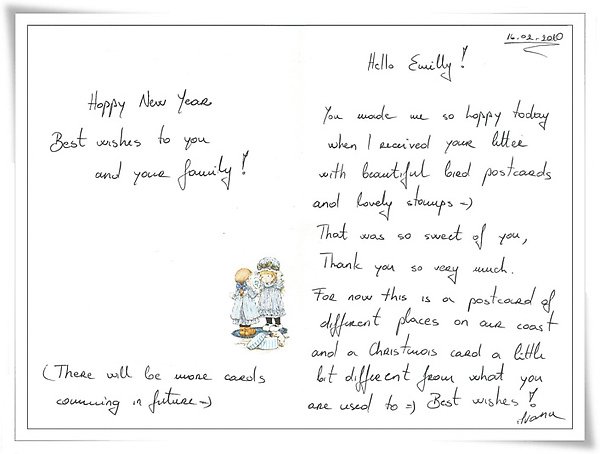 Happy New Year
Best wishes to you
and your family!
(There will be more cards
comming in future =)
16.02.2010
Hello Emilly!
You made me so happy today
when I received your letter
with beautiful bird postcards
and lovely stamps =)
That was so sweet of you,
Thank you so very much.
For now this is a postcard of
different places on our coast
and a Christmas card a little
bit different from what you
are used to =) Best wishes!
Ivana